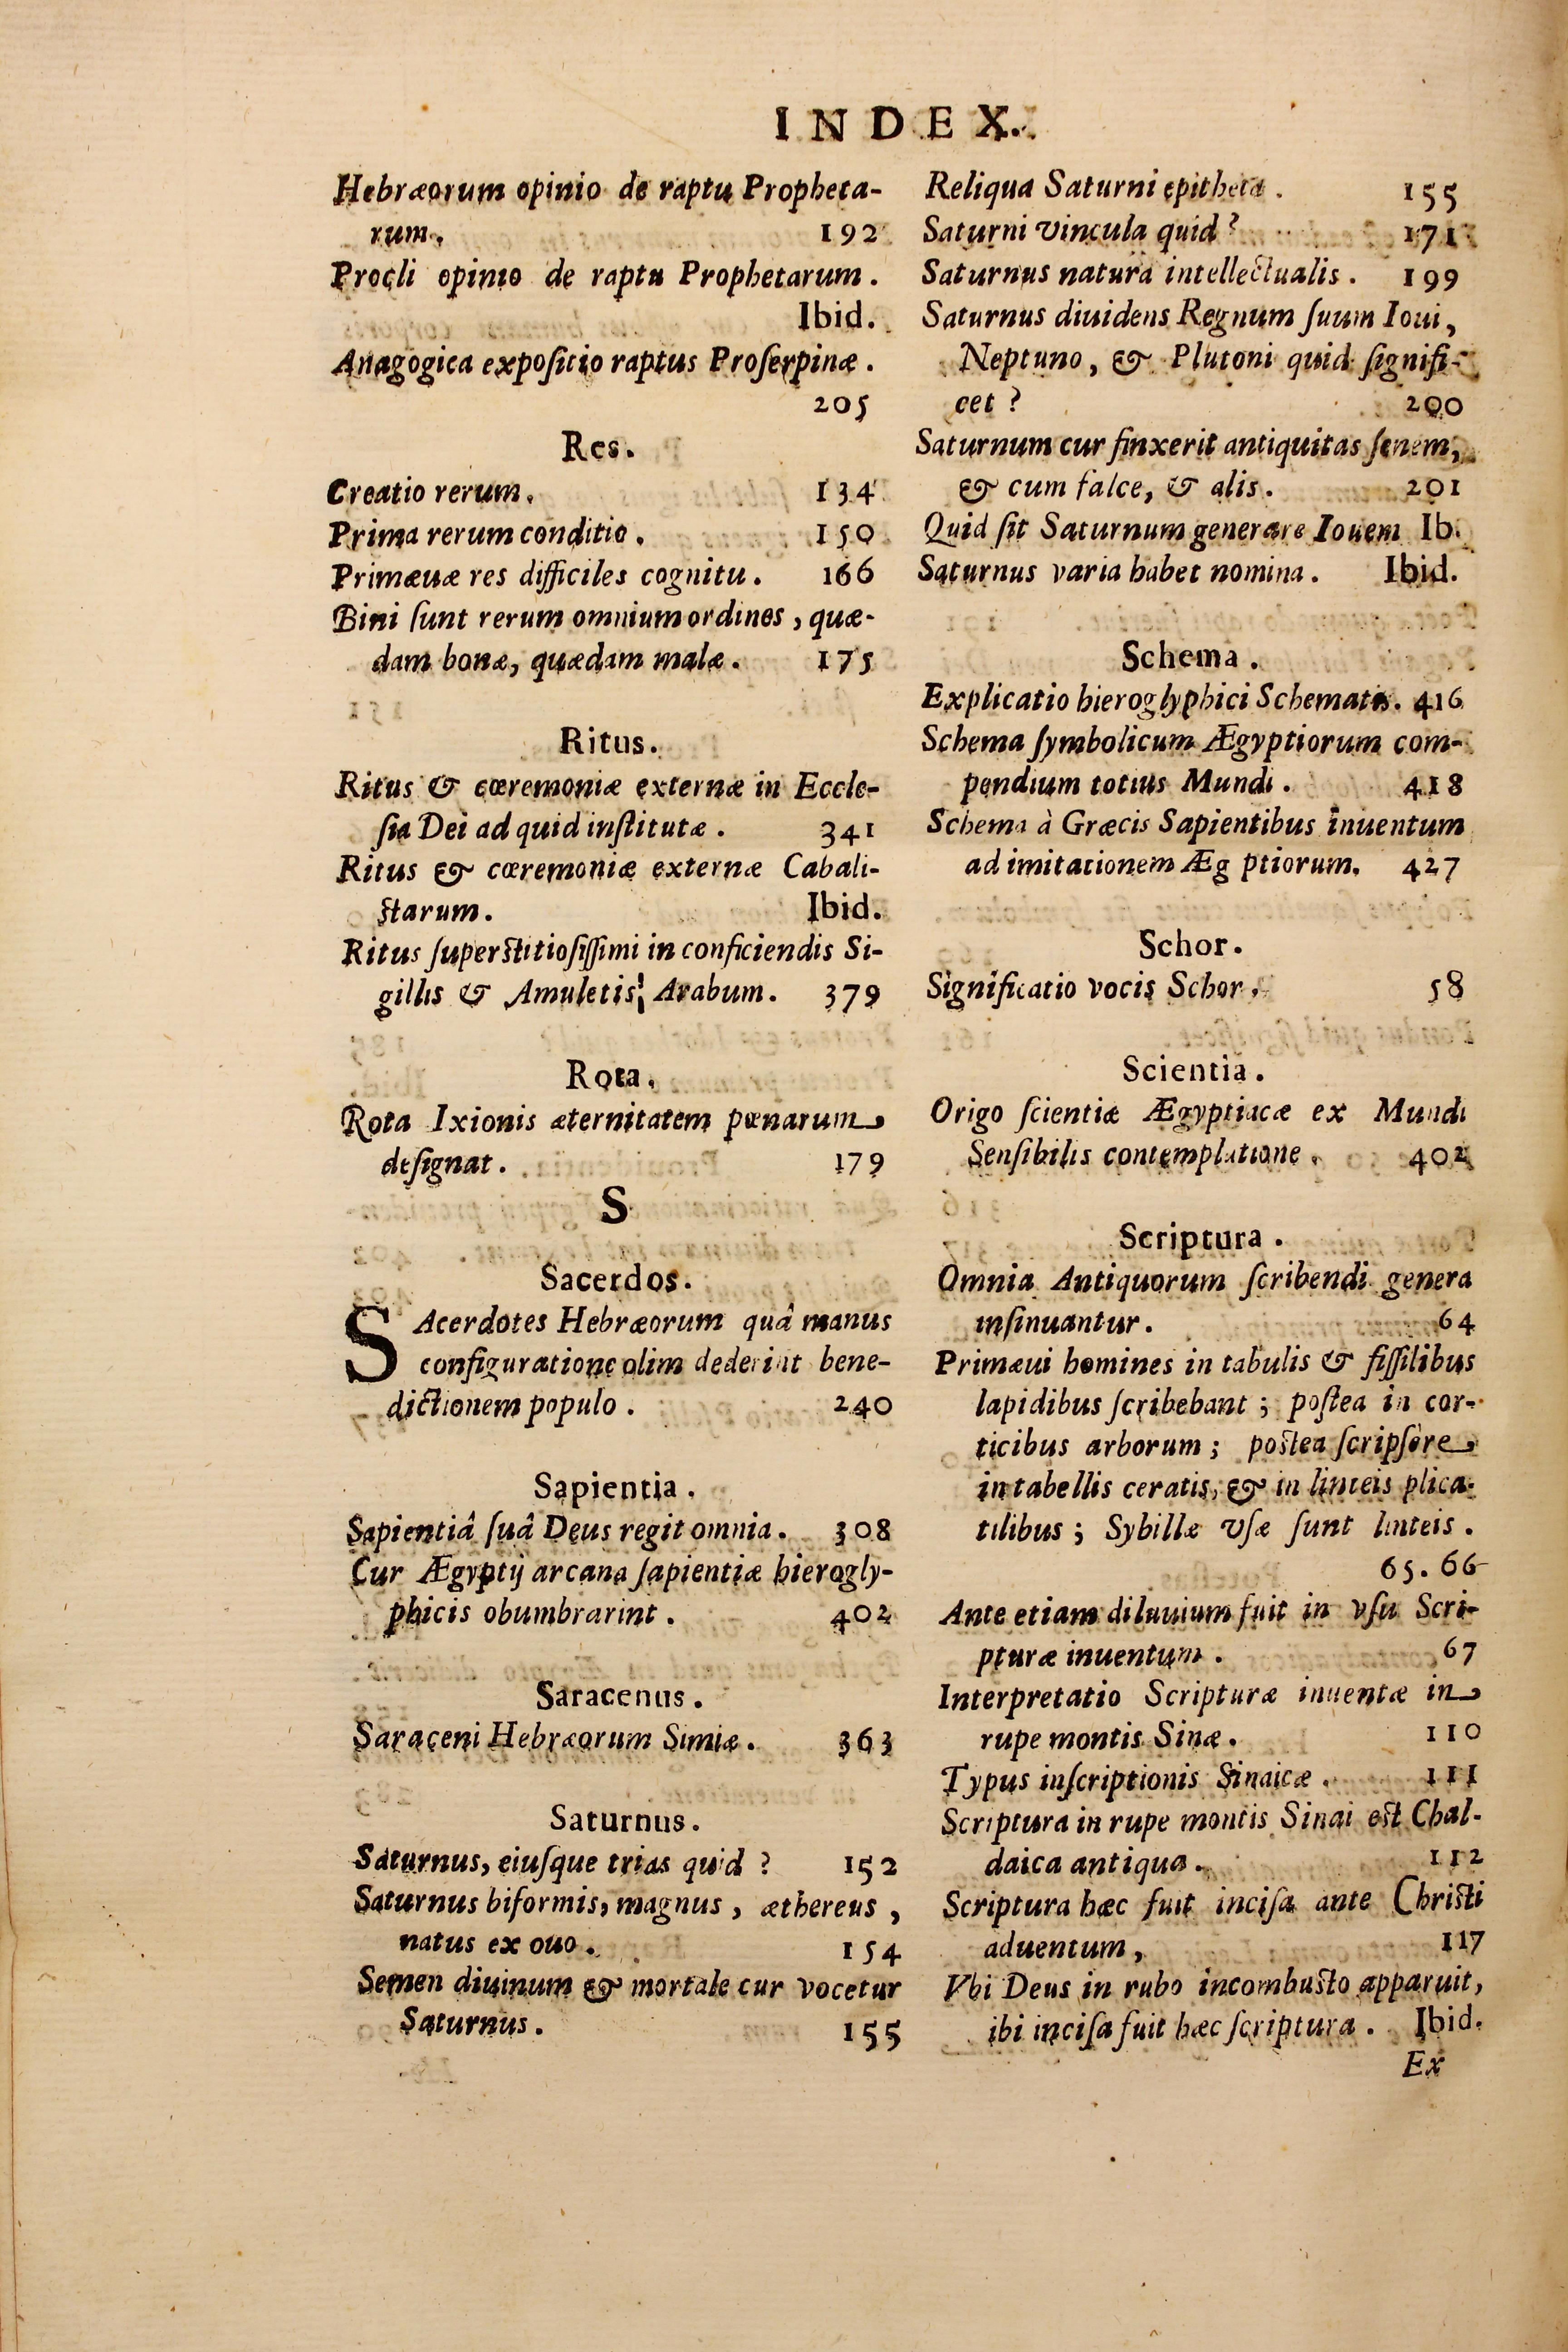 INDEX.
Hebræorum opinio de raptu Propheta-
rum. 192
Procli opinio de raptu Prophetarum.
Ibid.
Anagogica expoſitio raptus Proſerpinæ.
205
Res.
Creatio rerum. 134
Prima rerum conditio. 150
Primæuæ res difficiles cognitu. 166
Bini ſunt rerum omnium ordines, quæ-
dam bonæ, quædam malæ. 175
Ritus.
Ritus & cœremoniæ externæ in Eccle-
ſia Dei ad quid inſtitutæ. 341
Ritus & cœremoniæ externæ Cabali-
ſtarum. Ibid.
Ritus ſuperſtitioſiſſimi in conficiendis Si-
gillis & Amuletis Arabum. 379
Rota.
Rota Ixionis æternitatem pœnarum
deſignat. 179
S
Sacerdos.
SAcerdotes Hebræorum quâ manus
configuratione olim dederint bene-
dictionem populo. 240
Sapientia.
Sapientiâ ſuâ Deus regit omnia. 308
Cur Ægyptij arcana ſapientiæ hierogly-
phicis obumbrarint. 402
Saracenus.
Saraceni Hebræorum Simiæ. 363
Saturnus.
Saturnus, eiuſque trias quid? 152
Saturnus biformis, magnus, æthereus,
natus ex ouo. 154
Semen diuinum & mortale cur vocetur
Saturnus. 155
Reliqua Saturni epitheta. 155
Saturni vincula quid? 171
Saturnus natura intellectualis. 199
Saturnus diuidens Regnum ſuum Ioui,
Neptuno, & Plutoni quid ſignifi-
cet? 200
Saturnum cur finxerit antiquitas ſenem,
& cum falce, & alis. 201
Quid ſit Saturnum generare Iouem Ib.
Saturnus varia habet nomina. Ibid.
Schema.
Explicatio hieroglyphici Schematis. 416
Schema ſymbolicum Ægyptiorum com-
pendium totius Mundi. 418
Schema à Græcis Sapientibus inuentum
ad imitationem Æg ptiorum. 427
Schor.
Significatio vocis Schor. 58
Scientia.
Origo ſcientiæ Ægyptiacæ ex Mundi
Senſibilis contemplatione. 402
Scriptura.
Omnia Antiquorum ſcribendi genera
inſinuantur. 64
Primæui homines in tabulis & fiſſilibus
lapidibus ſcribebant; poſtea in cor-
ticibus arborum; poſtea ſcripſere
in tabellis ceratis, & in linteis plica-
tilibus; Sybillæ vſæ ſunt linteis.
65. 66
Ante etiam diluuium fuit in vſu Scri-
pturæ inuentum. 67
Interpretatio Scripturæ inuentæ in
rupe montis Sinæ. 110
Typus inſcriptionis Sinaicæ. 111
Scriptura in rupe montis Sinai eſt Chal-
daica antiqua. 112
Scriptura hæc fuit inciſa ante Chriſti
aduentum, 117
Vbi Deus in rubo incombuſto apparuit,
ibi inciſa fuit hæc ſcriptura. Ibid.
Ex